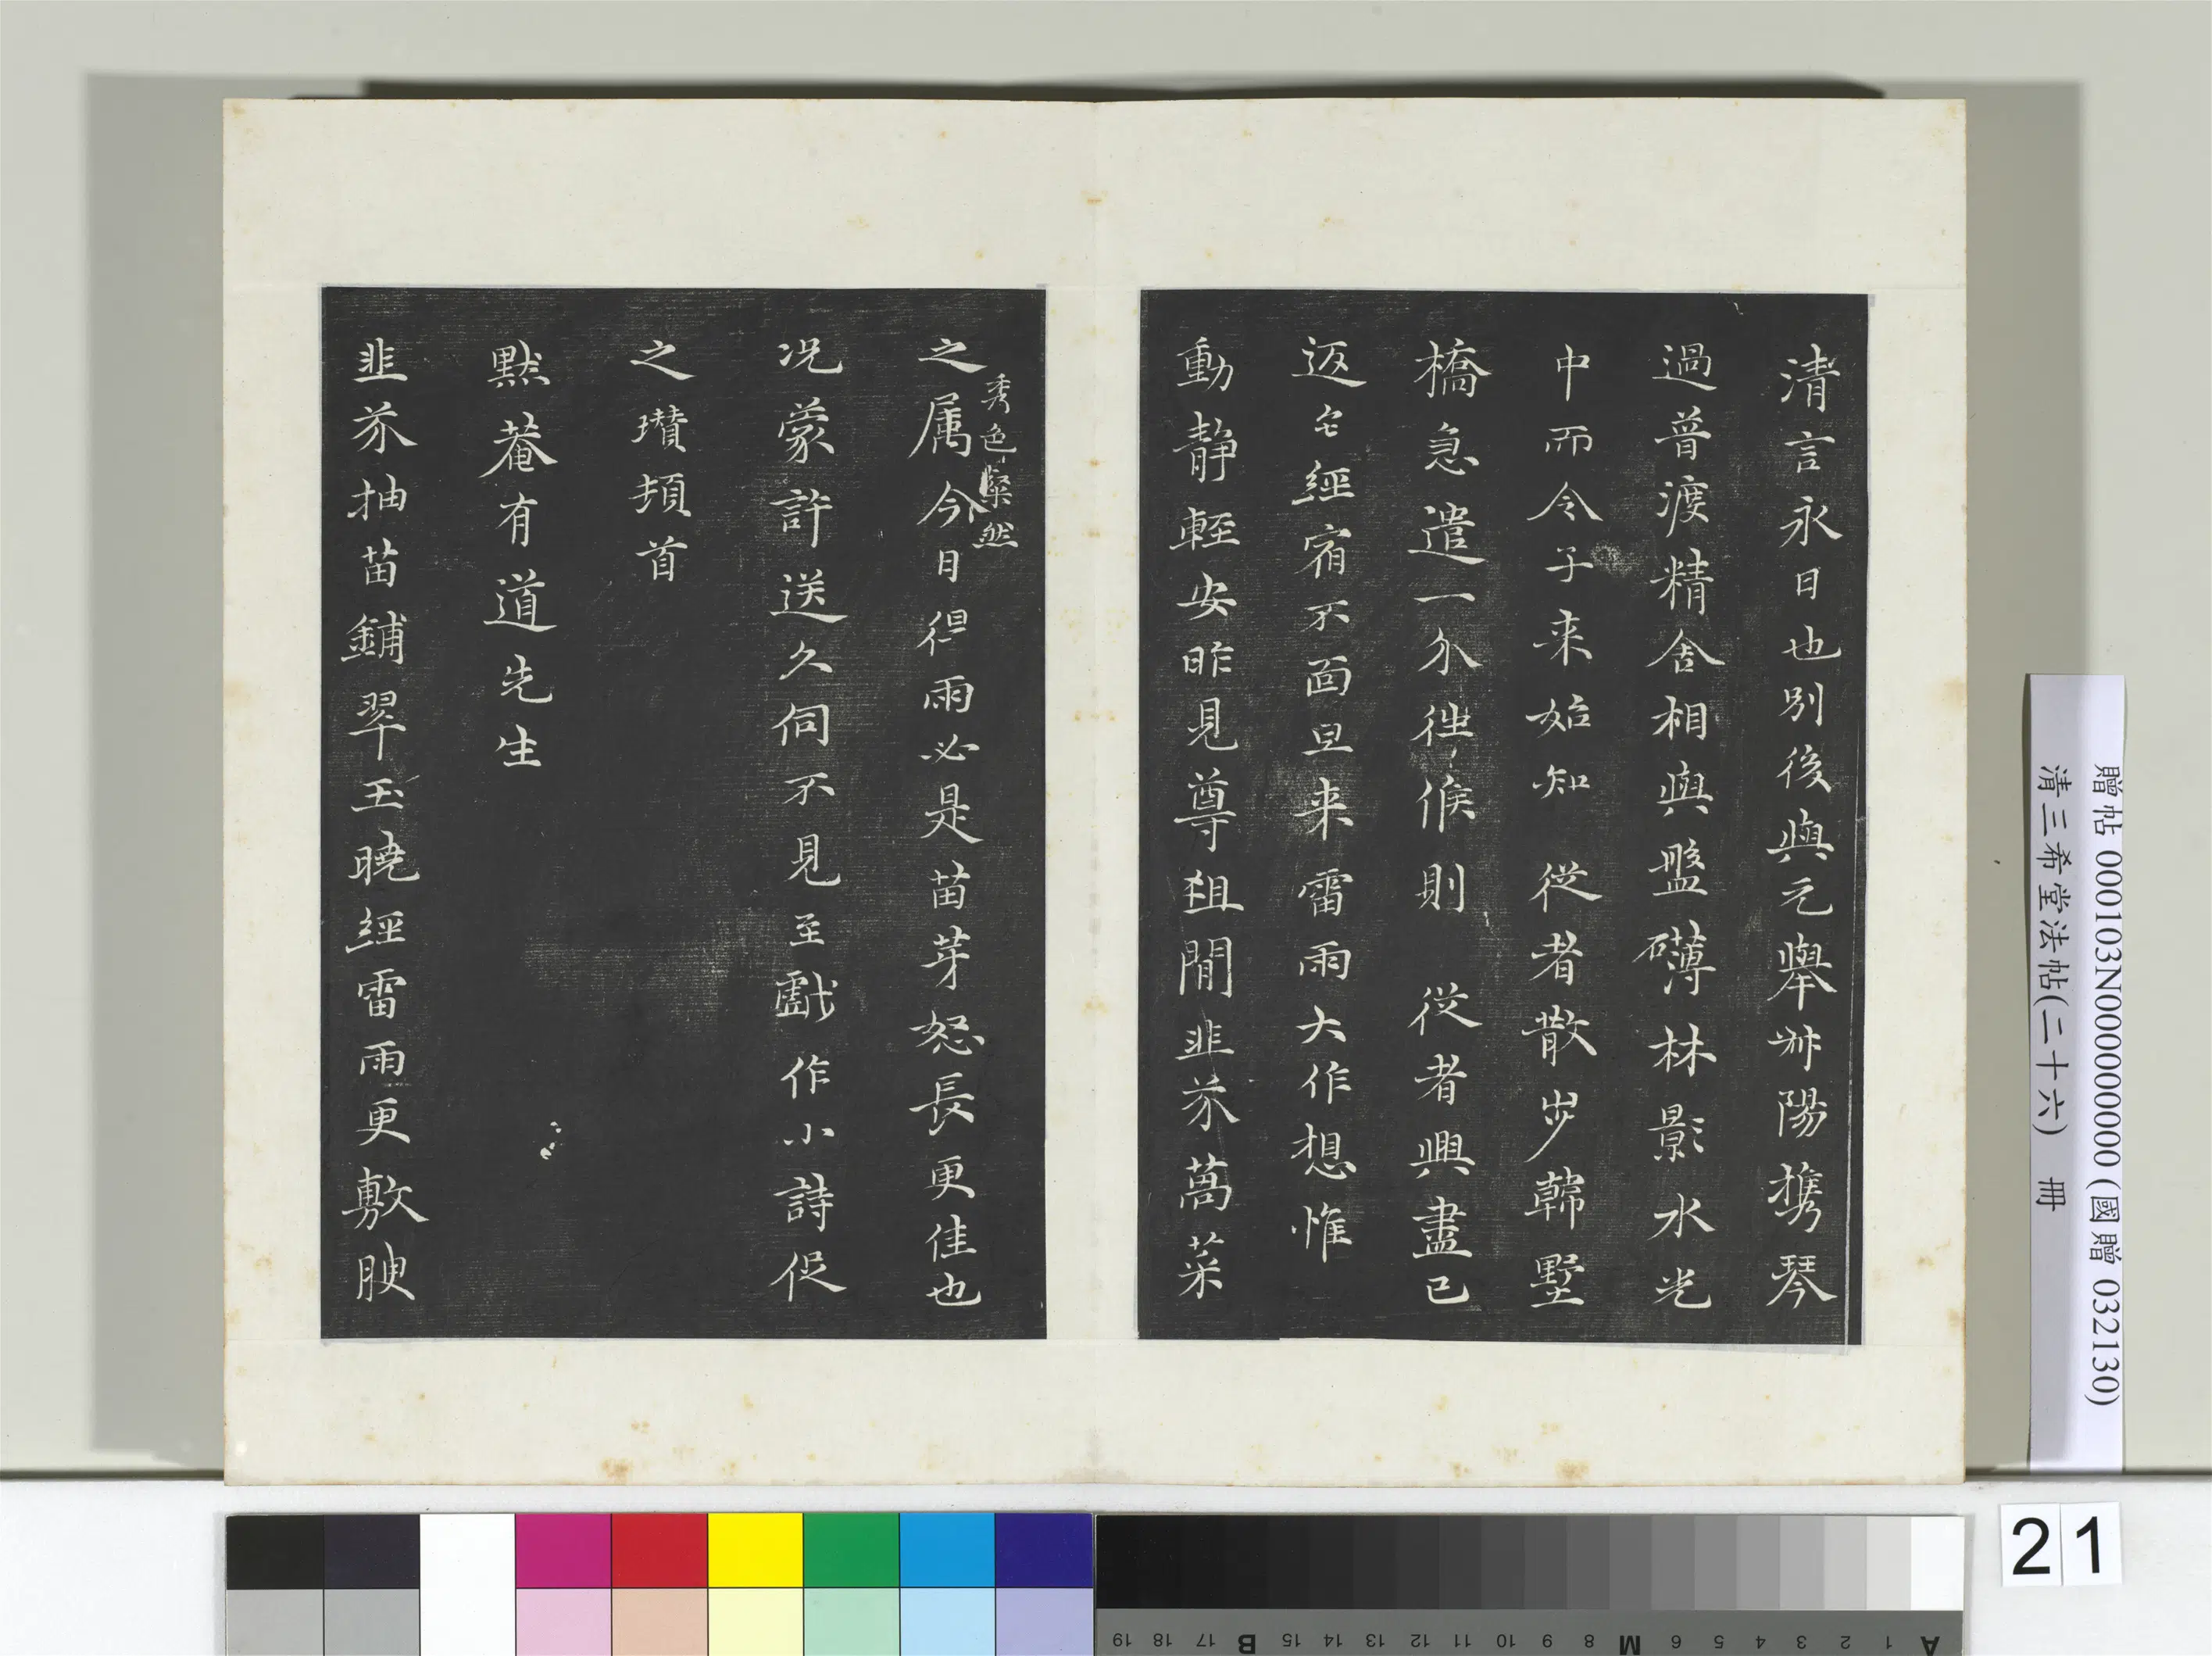 清言永日也別後與元舉叔陽攜琴
過普渡精舍相與盤礴林影水光
中而令子来始知 從者散步韓墅
橋急遣一介往候則 從者興盡已
返宅經宿不面旦来雷雨大作想惟
動静輕安昨見尊俎間韭芥萵菜
之属今日但雨必是苗芽怒長更佳也
秀色粲然
况蒙許送久伺不見至戲作小詩促
之瓚頓首
黙菴有道先生
韭芥抽苗鋪翠玉曉經雷雨更敷腴
贈帖 000103N000000000 (國贈 032130)
清三希堂法帖(二十六) 冊
21
A 1 2 3 4 5 6 M 8 9 10 11 12 13 14 15 B 17 18 19